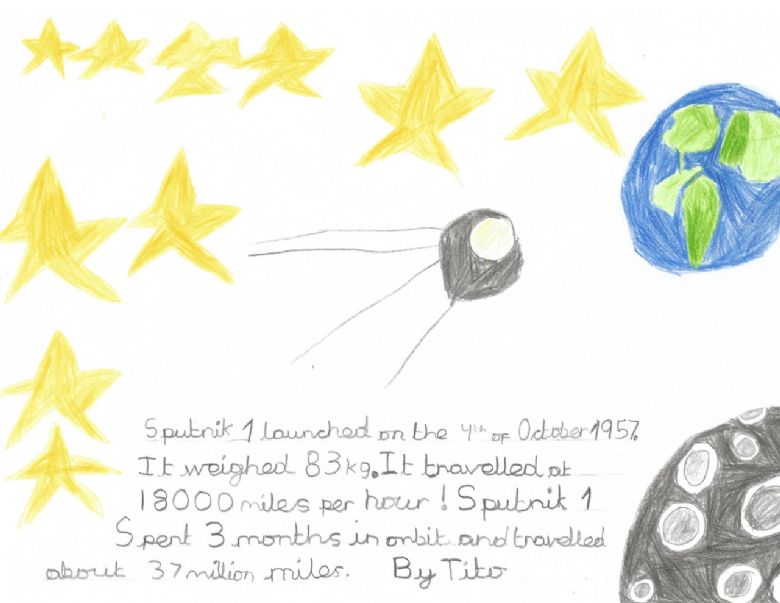 Sputnik 1 launched on the 4th of October 1957.
It weighed 83kg. It travelled at
18000 miles per hour! Sputnik 1
Spent 3 months in orbit and travelled
about 37 million miles. By Tito